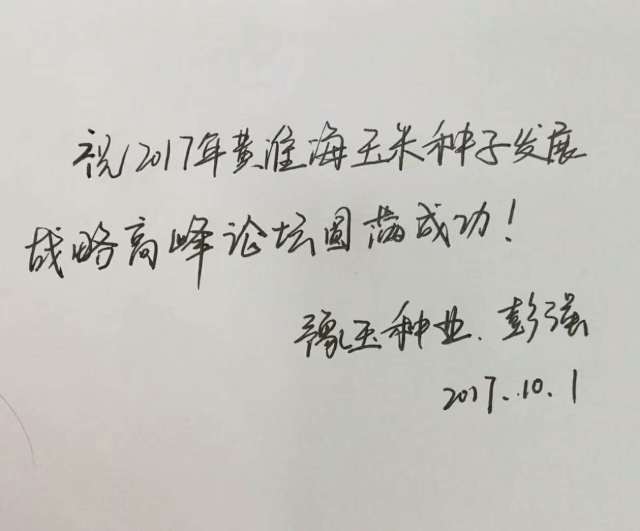 祝2017年黄淮海玉米种子发展
战略高峰论坛圆满成功!
豫玉种业.彭强
2017.10.1